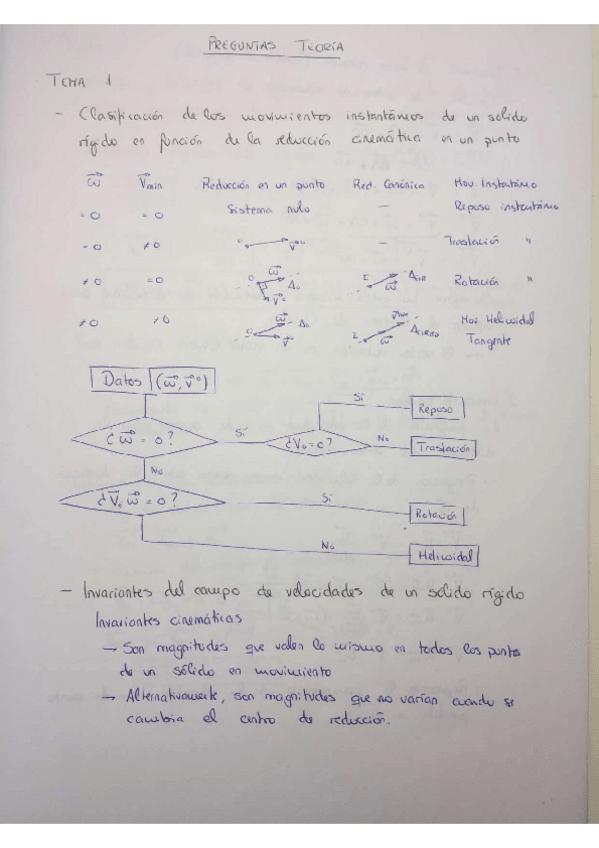 PREGUNTAS TEORÍA
TEMA 1
- Clasificación de los movimientos instantáneos de un sólido
rígido en función de la reducción cinemática en un punto
ω⃗ V⃗min Reducción en un punto Red. Canónica Mov. Instantáneo
= 0 = 0 Sistema nulo — Reposo instantáneo
= 0 ≠ 0 O V⃗° — Traslación "
≠ 0 = 0 O ω⃗ Δ₀ V⃗° I ω⃗ ΔEIR Rotación "
≠ 0 ≠ 0 O ω⃗ Δ₀ V⃗° I V⃗min ω⃗ Mov. Helicoidal
Tangente
Datos (ω⃗, V⃗°)
Sí
Reposo
¿ω⃗ = 0? Sí ¿V₀ = 0? No Traslación
No
¿V⃗₀ ω⃗ = 0? Sí Rotación
No Helicoidal
- Invariantes del campo de velocidades de un sólido rígido
Invariantes cinemáticas
→ Son magnitudes que valen lo mismo en todos los puntos
de un sólido en movimiento
→ Alternativamente, son magnitudes que no varían cuando se
cambia el centro de reducción.